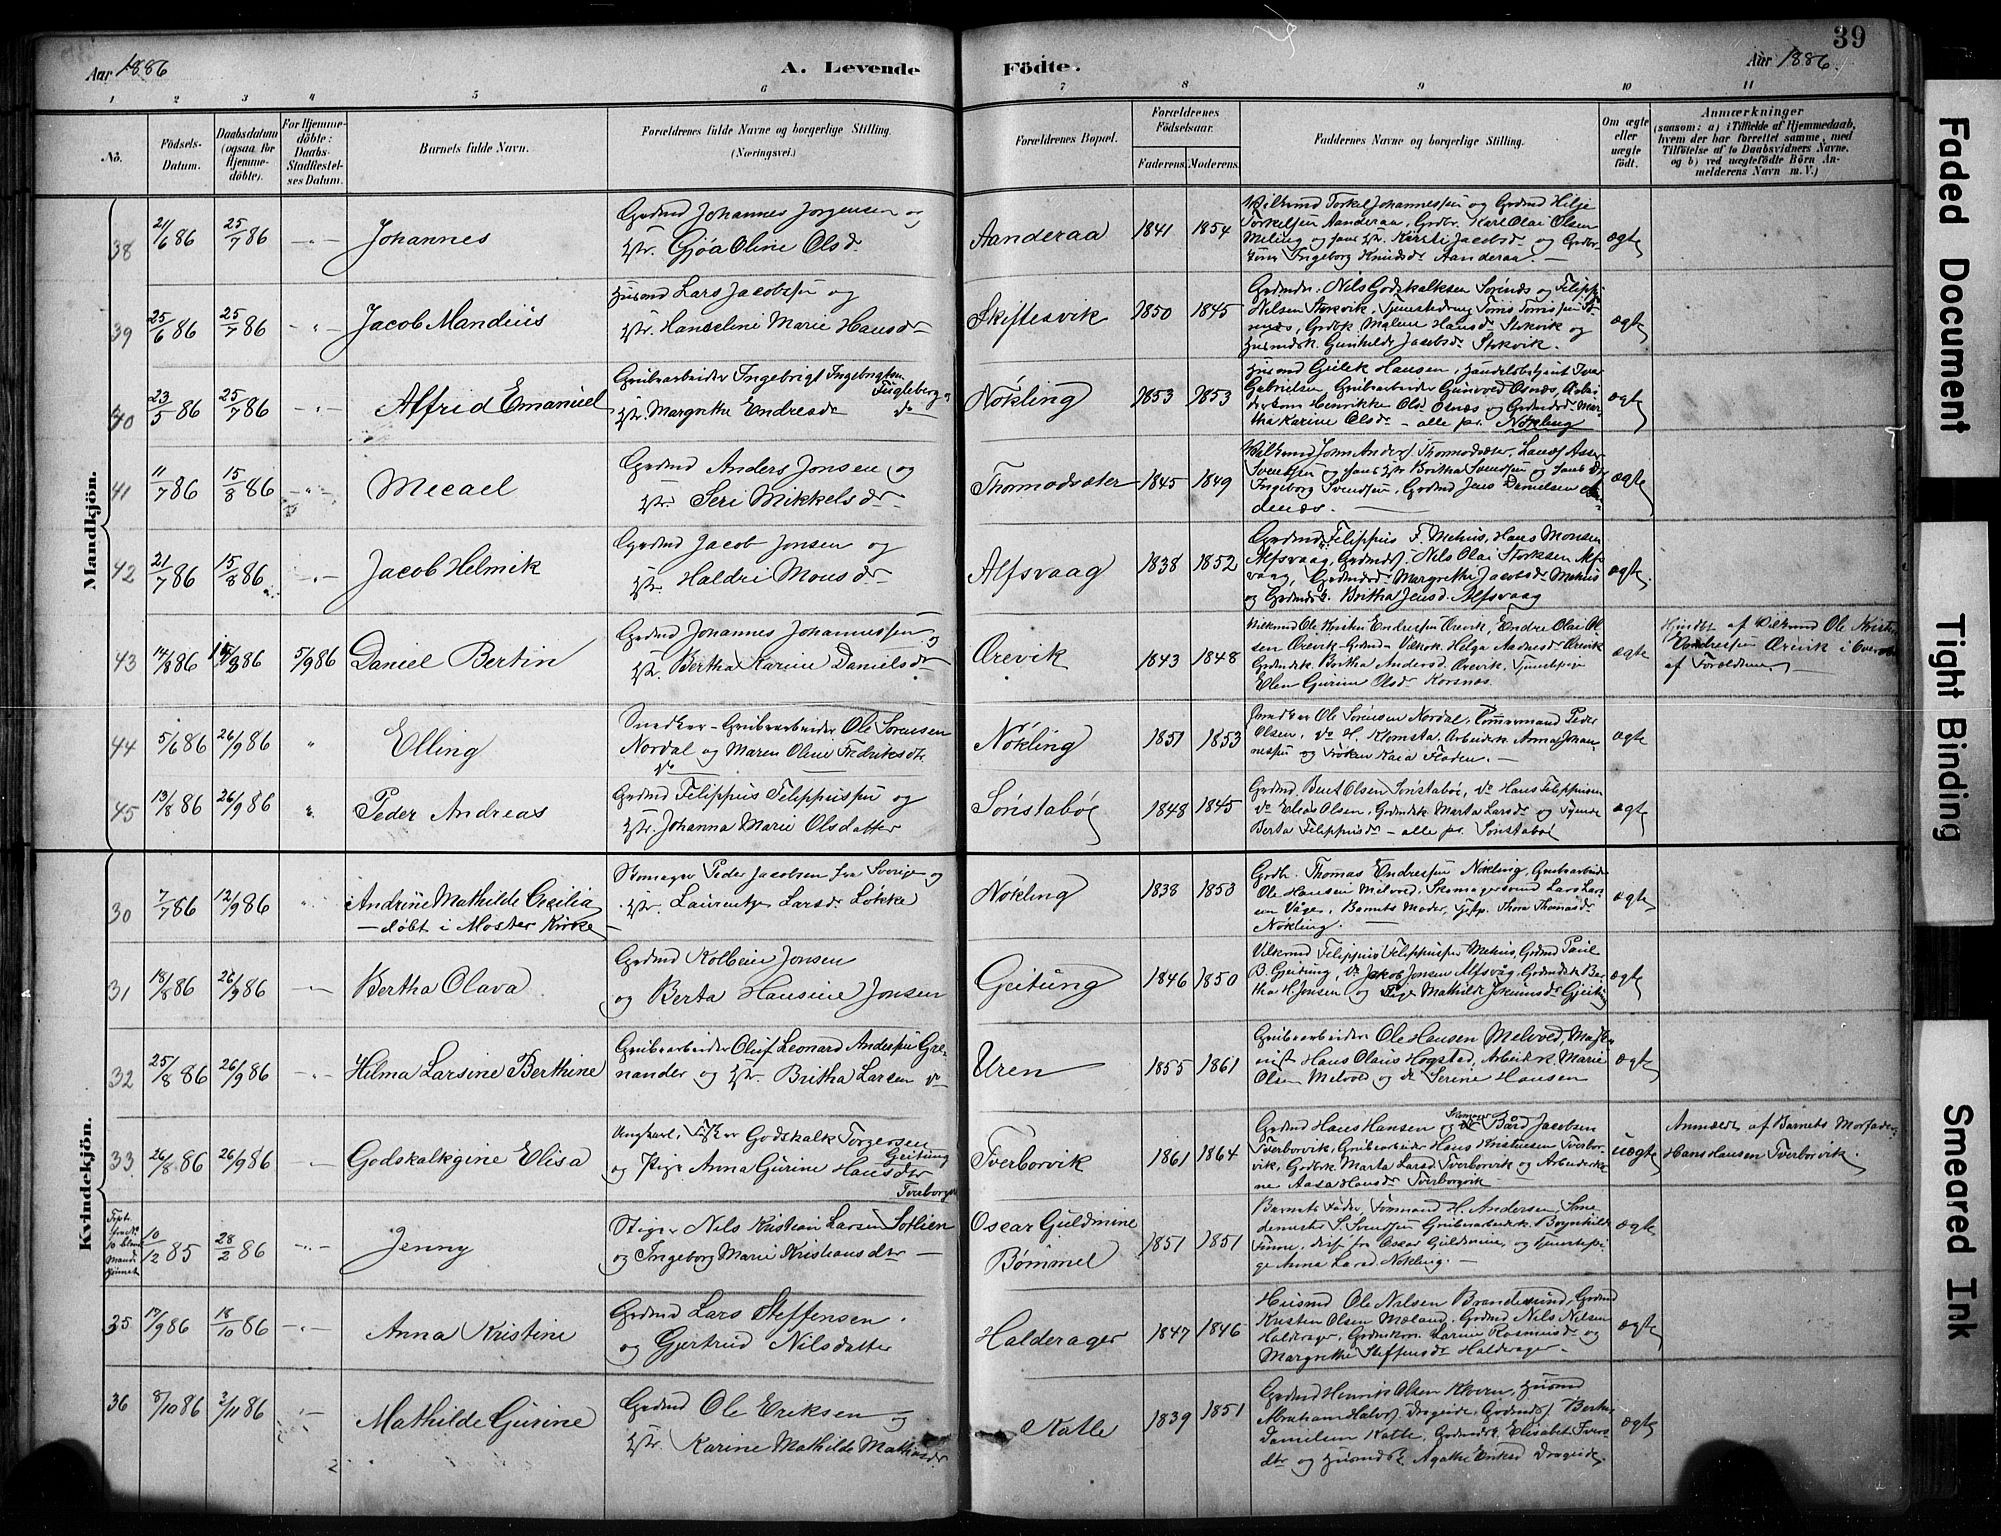 39
Aar 1886
A. Levende
Födte.
Aar 1886.
1 2 3 4 5 6 7 8 9 10 11
No.
Födsels-
Datum.
Daabsdatum
(ogsaa for
Hjemme-
döbte).
For Hjemme-
döbte:
Daabs-
Stadfæstel-
ses Datum.
Barnets fulde Navn.
Forældrenes fulde Navne og borgerlige Stilling.
(Næringsvei.)
Forældrenes Bopæl.
Forældrenes
Födselsaar.
Faderens. Moderens.
Faddernes Navne og borgerlige Stilling.
Om ægte
eller
uægte
födt.
Anmærkninger
(saasom: a) i Tilfælde af Hjemmedaab,
hvem der har forrettet samme, med
Tilföielse af to Daabsvidners Navne,
og b) ved uægtefödte Börn An-
melderens Navn m. V.)
Mandkjön.
38 21/6 86 25/7 86 Johannes
Grdmd Johannes Jørgensen og
Hstr. Gjøa Oline Olsd.
Aanderaa 1841 1854
Torkel Johannessen og Grdmd Helje
Torkelsen Aanderaa, Grdbr. Karl Olai Olsen
Meling og hans Hstr. Kirsti Jacobsdr og Grdbr
Ingeborg Knudsdr Aanderaa. —
ægte
39 25/6 86 25/7 86 Jacob Mandius
Husmd Lars Jacobsen og
Hstr. Hanseline Marie Hansdr
Skiftesvik 1850 1845
Nils Godskalksen Sørnæs og Filippus
Nilsen Stokvik,
Malene Hansdr Stokvik og
Husmdsk. Gunhilde Jacobsdr Stokvik.
ægte
40 23/5 86 25/7 86 Alfrid Emanuel
Grubearbeider Ingebrigt Ingebrigtsen
Fugleberg og
Hstr. Margrethe Endresdr do
Nökling 1853 1853
Husmd Gulek Hansen, Handelsbetjent Ivar
Gabrielsen, Grubearbeider Gunvod Osnæs,
Henrikke Olsdr Osnæs og Mar-
tha Karine Olsdr — alle pr. Nökling
ægte
41 11/7 86 15/8 86 Mecael
Grdmd Anders Jonsen og
Hstr. Seri Mikkelsdr
Thormodsæter 1845 1849
John Anders. Thormodsæter,
Svendsen og hans Hstr Britha Svendsen
Ingeborg Svendsen, Grdmd Jens Danielsen
ægte
42 21/7 86 15/8 86 Jacob Helmik
Grdmd Jacob Jonsen og
Hstr. Haldri Monsdr
Alfsvaag 1838 1852
Grdmd Filippus F. Mehus, Hans Monsen
Alfsvaag, Nils Olai Storksen Alf-
vaag, Margrethe Jacobsdr Mehus
og Grdmdsk. Britha Jensd. Alfsvaag
ægte.
43 14/8 86 15/8 86 5/9 86 Daniel Bertin
Grdmd Johannes Johannessen og
Hstr. Bertha Karine Danielsdr
Ørevik 1843 1848
Ole Kristen Endresen Ørevik, Endre Olai Ol-
sen Ørevik, Helga Ørevik
Grdmdsk. Britha Andersd. Ørevik, Tjenestpige
Elen Gurine Olsdr Korsnæs.
ægte
Ole Kristen
Endresen Ørevik i Overvær
af Forældrene
44 5/6 86 26/9 86 Elling
Snedker – Grubearbeider Ole Sørensen
Nordal og Maren Oline Fredriksdtr
Nökling 1851 1853
Snedker Ole Sørensen Nordal, Tømmermand Peder
Olsen, do H. Klomsta, Arbeiderk. Anna Johan-
nessen og Frøken Kaia Floden. —
ægte
45 13/8 86 26/9 86 Peder Andreas
Grdmd Filippus Filippussen og
Hstr. Johanna Marie Olsdatter
Sönstabö 1848 1845
Grdmd. Bent Olsen Sönstabö, do Hans Filippussen
do Elias Olsen, Grdmdsk Marta Larsdr og Tjenestp.
Berta Filippusdr — alle pr. Sönstabö
ægte
Kvindekjön.
30 7/7 86 12/9 86 Andrine Mathilde Cecilia
— döbt i Moster Kirke —
Skomager Peder Jacobsen fra Sverige og
Hstr. Laurentze Larsdr Løkke
Nökling 1838 1853
Grdbr. Thomas Endresen Nökling, Grubearbeider
Ole Hansen Melvod, Skomagersvend Lars Lar-
sen Våge, Barnets Moder, Thora Thomasdr
Nökling.
ægte
31 18/8 86 26/9 86 Bertha Olava
Grdmd Kolbein Jonsen
og Berta Hansine Jonsen
Geitung 1846 1850
Filippus Filippussen Mehus, Grdmd Paul
B. Gjeitung, do Jakob Jonsen Alfsvåg, Grdmdsk Ber-
tha H. Jonsen og Pige Mathilde Jokumsdr Gjeitung
ægte
32 25/8 86 26/9 86 Helma Larsine Berthine
Grubearbeider Oluf Leonard Andersen Gre-
nander og Hstr. Britha Larsen do
Uren 1855 1861
Grubearbeider Ole Hansen Melvod, Maski-
nist Hans Olaus Hogstad, Arbeidsk. Marie
Olsen Melvold og do Serine Hansen
ægte
33 26/8 86 26/9 86 Godskalkgine Elisa
Ungkarl, Fisker Godskalk Torgersen
Geitung
og Pige Anna Gurine Hansdr
Tverborvik
Tverborvik 1861 1864
Grdmd Hans Hansen og Skomager Bård Jacobsen
Tverborvik, Grubearbeider Hans Kristensen Tverbor-
vik, Grdbrk. Marta Larsd Tverborvik og Arbeiderko-
ne Aasa Hansdr Tverborgvik
uægte
Anmeldt af Barnets Morfader
Hans Hansen Tverborvik.
10 blandt
Mand-
kjønnet
10/12 85 28/2 86 Jenny
Stiger Nils Kristian Larsen Sotlien
og Ingeborg Marie Kristiansdtr —
Oscar Guldmine
Bømmel
1851 1851
Barnets Fader, Tømmermand H. Andersen, Sme-
demester S. Svendsen, Grubearbeidersk. Boynhilde
Finne, disse fra Oscar Guldmine, og Tjenestepi-
ge Anna Larsd. Nökling. —
ægte
35 17/9 86 18/10 86 Anna Kristine
Grdmd Lars Steffensen
og Gjertrud Nilsdatter
Halderager 1847 1846
Husmd Ole Nilsen Brandesund, Grdmd
Kristen Olsen Mæland, Grdmd Nils Nilsen
Haldrager, Grdmkon. Larine Rasmusdr og
Margrethe Steffensdr Haldrager.
ægte
36 8/10 86 2/11 86 Mathilde Gurine
Grdmd Ole Eriksen og
Hstr. Karine Mathilde Mathiasdr
Natle 1839 1851
Grdmd Henrik Olsen Hovern, Husmd
Abraham Halvors. Drageide, Bertin
Danielsen Natle, Grdmdsk. Elisabet Ivers-
dtr og Husmdsk. Agathe Eriksd Drageide.
ægte
Faded Document
Tight Binding
Smeared Ink